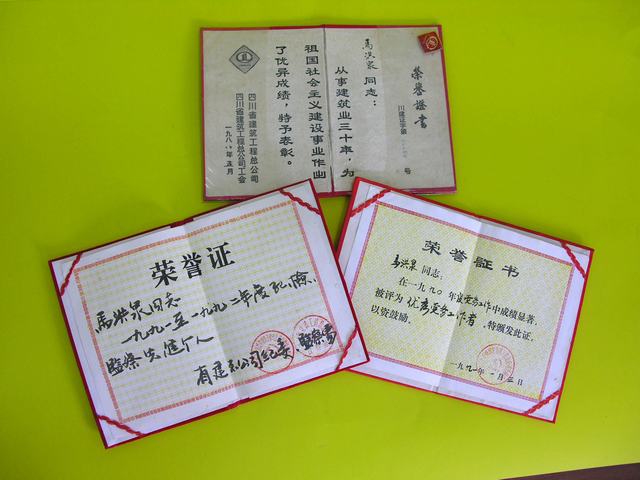 荣誉證書
川建证字第
号
马洪泉 同志：
从事建筑业三十年，为
祖国社会主义建设事业作出
了优异成绩，特予表彰。
四川省建筑工程总公司
四川省建筑工程总公司工会
一九八八年五月
荣誉证
马洪泉同志
一九九一至一九九二年度纪检、
监察先进个人
省建五公司纪委、监察室
荣誉証书
马洪泉同志：
在一九九〇年度党务工作中成绩显著，
被评为优秀党务工作者，特颁发此证，
以资鼓励。
一九九一年一月三日